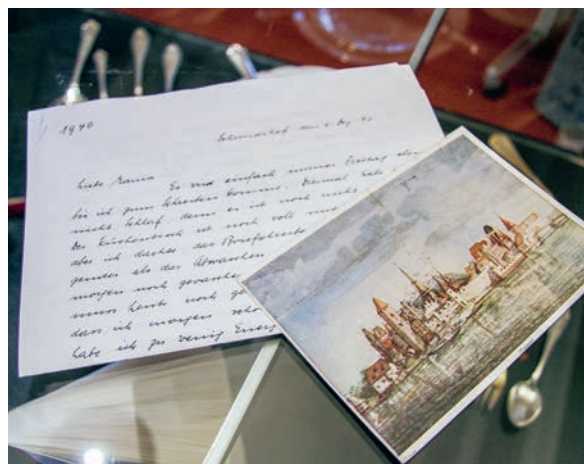 1970
Liebe Mama Es wird einfach immer Freitag aber
bis ich zum Schreiben komme. Diesmal habe
nicht Schlaf denn es ist noch nicht
Der Küchentisch ist noch voll mit
aber ich dachte, das Briefschreiben
genutes als das Abwaschen.
morgen noch gewaschen
muss heute noch
dass ich morgen
habe ich zu wenig Energ